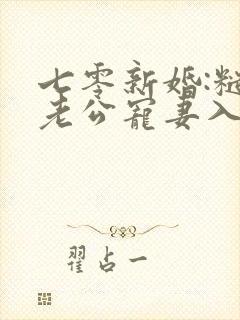 七零新婚:糙
老公宠妻入
翟占一